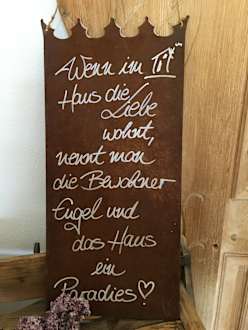 Wenn im
Haus die
Liebe
wohnt,
nennt man
die Bewohner
Engel und
das Haus
ein
Paradies♡